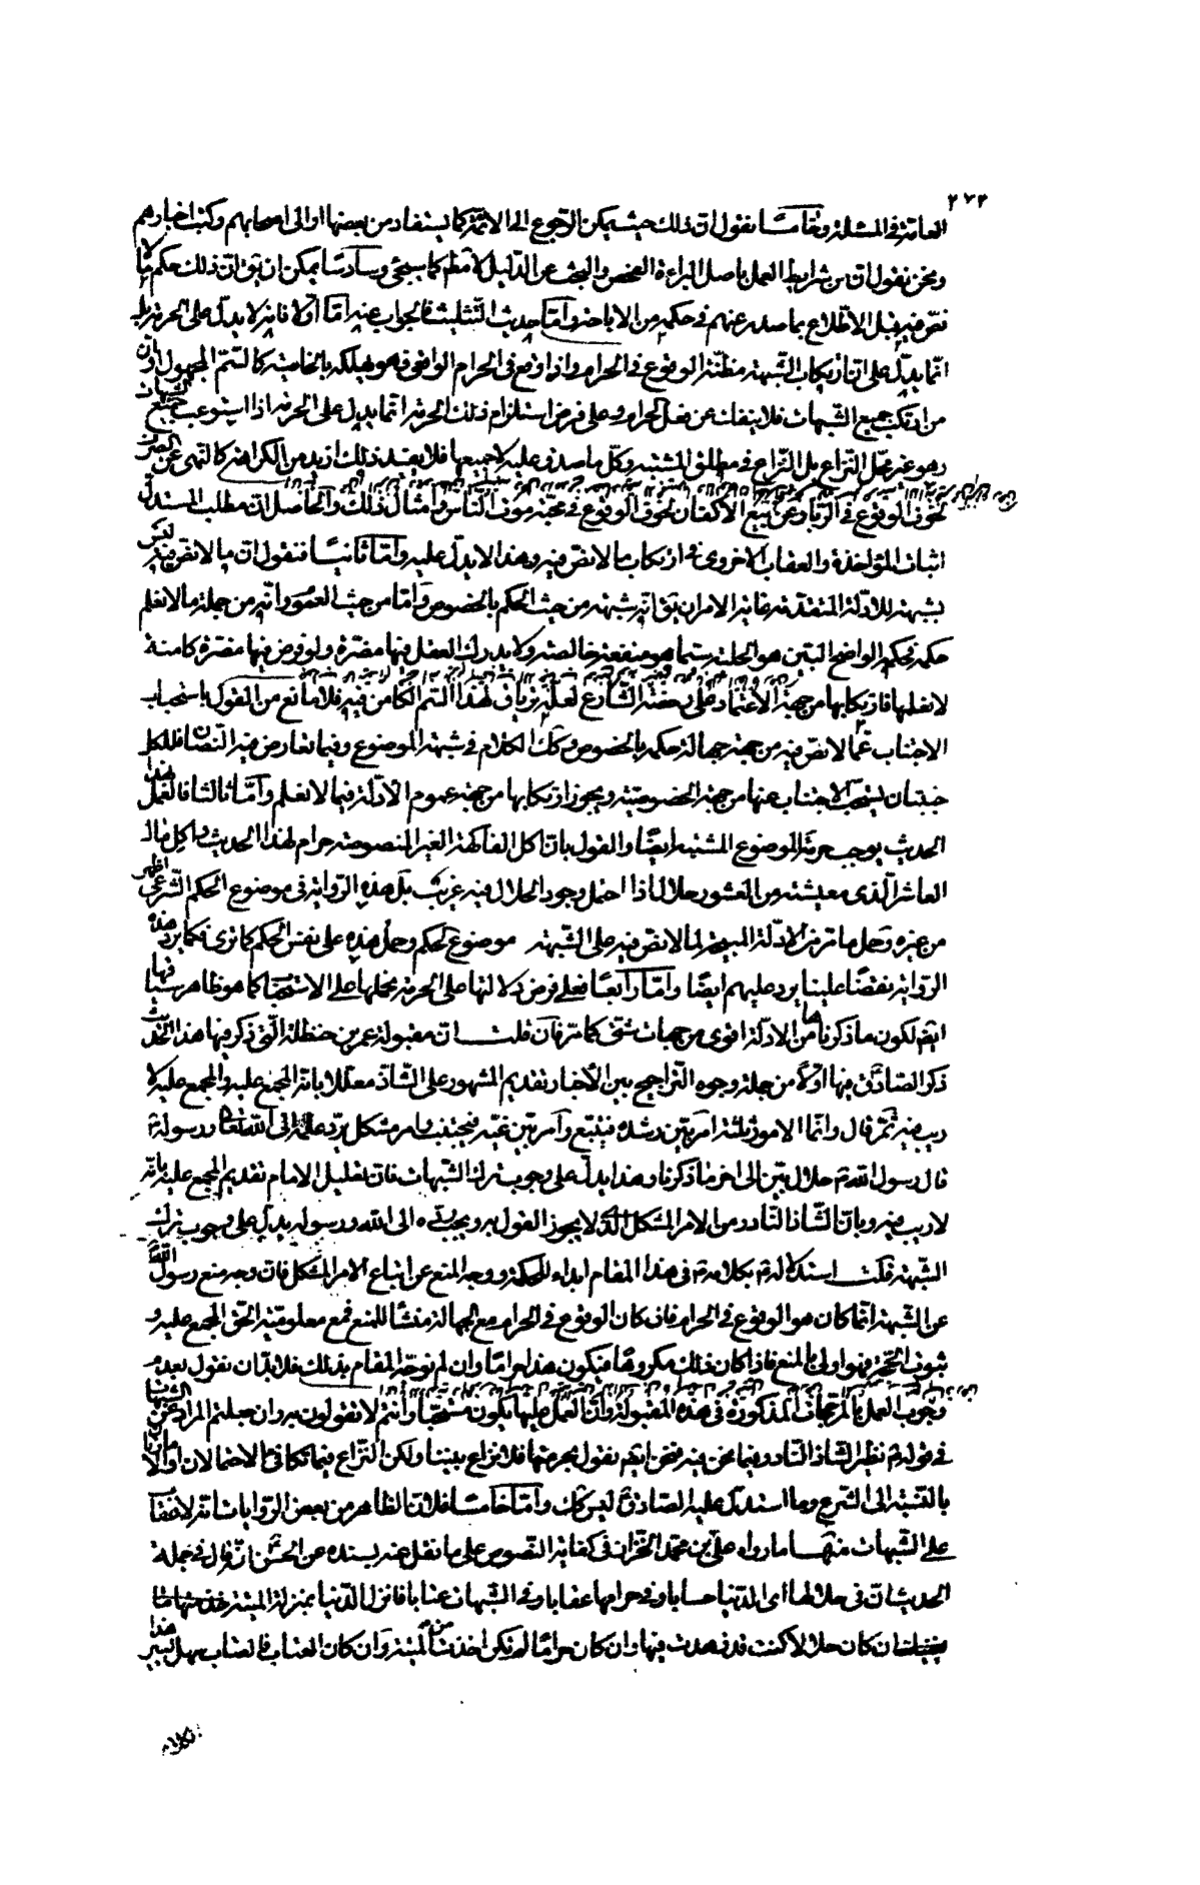 ٢٧٣
العامة في المسئلة وخامسا نقول ان ذلك حيث يمكن الرجوع الى الائمة كما يستفاد من بعضها او الى اصحابهم وكتب اخبارهم
ونحن نقول ان من شرايط العمل باصل البراءة الفحص والبحث عن الدليل كما سيجئ وسادسا يمكن ان يق ان ذلك حكم ما لا
نص فيه قبل الاطلاع بما صدر عنهم في حكمه من الاباحة واما حديث التثليث فالجواب عنه اما اولا فانه لا يدل على الحرمة بل
انما يدل على ان ارتكاب الشبهة مظنة الوقوع في الحرام واذا وقع في الحرام الواقعي فهو يهلكه بالخاصية كالسم المجهول او ان
من ارتكب جميع الشبهات فلا ينفك عن فعل الحرام وعلى فرض استلزام ذلك الحرمة انما يدل على الحرمة اذا استوعب جميع الشبهات
وهو غير محل النزاع بل النزاع في مطلق المشتبه وكل ما صدق عليه لا جميعها فلا يفيد ذلك ازيد من الكراهة كالنهى عن الصرف
لخوف الوقوع في الربا وعن بيع الاكفان لخوف الوقوع في محبة موت الناس وامثال ذلك والحاصل ان مطلب المستدل
اثبات المؤاخذة والعقاب الاخروى في ارتكاب ما لا نص فيه وهذا لا يدل عليه واما ثانيا فنقول ان ما لا نص فيه ليس
بشبهة للادلة المتقدمة غاية الامر ان يق انه شبهة من حيث الحكم بالخصوص واما من حيث العموم وانه من جملة ما لا نعلم
حكمه فحكمه الواضح البين هو الحلية سيما هو منفعة خالصة ولا يدرك العقل فيها مضرة ولو فرض فيها مضرة كامنة
لا نعلمها فارتكابها من جهة الاعتماد على رخصة الشارع لعله ترياق لهذا السم الكامن فيه فلا مانع من القول باستحباب
الاجتناب عما لا نص فيه من جهة جهالة حكمه بالخصوص وكك الكلام في شبهة الموضوع وفيما تعارض فيه النصان فللكل
جنبتان يستحب الاجتناب عنها من جهة الخصوصية ويجوز ارتكابها من جهة عموم الادلة فيما لا نعلم واما ثالثا فالعمل بهذا
الحديث يوجب حرمة الموضوع المشتبه ايضا والقول بان اكل الفاكهة الغير المنصوصة حرام لهذا الحديث واكل مال
العاشر الذى معيشته من العشور حلال اذا احتمل وجود الحلال فيه غريب بل هذه الرواية في موضوع الحكم الشرعي اظهر
من غيره وحل ما مر من الادلة المبيحة لما لا نص فيه على الشبهة موضوع الحكم وحمل هذه على نفس الحكم كما ترى فكما يرد هذه
الرواية نقضا علينا يرد عليهم ايضا واما رابعا فعلى فرض دلالتها على الحرمة نحملها على الاستحباب كما هو ظاهر سياقها
ايضا لكون ما ذكرناها من الادلة اقوى من جهات شتى كما مر فان قلت ان مقبولة عمر بن حنظلة التى ذكر فيها هذا الحديث
ذكر الصادق فيها اولا من جملة وجوه التراجيح بين الاخبار تقديم المشهور على الشاذ معللا بانه المجمع عليه والمجمع عليه لا
ريب فيه ثم قال وانما الامور ثلثة امر بين رشده فيتبع وامر بين غيه فيجتنب وامر مشكل يرد علمه الى الله تعالى ورسوله
قال رسول الله ص حلال بين الى اخر ما ذكرنا وهذا يدل على وجوب ترك الشبهات فان تعليل الامام تقديم المجمع عليه بانه
لا ريب فيه وبان الشاذ النادر من الامر المشكل الذى لا يجوز القول به ويجب رده الى الله ورسوله يدل على وجوب ترك
الشبهة قلت استدلاله بكلامه في هذا المقام ابداء للحكمة ووجه المنع عن اتباع الامر المشكل فان وجه منع رسول الله
عن الشبهة انما كان هو الوقوع في الحرام فان كان الوقوع في الحرام مع الجهالة منشا للمنع فمع معلومية الحق المجمع عليه و
ثبوت الحجة فهو اولى بالمنع فاذا كان ذلك مكروها فيكون هذا حراما وان لم نوجه المقام بذلك فلا بد ان نقول بعدم
وجوب العمل بالمرجحات المذكورة في هذه المقبولة وان العمل عليها يكون مستحبا وانتم لا تقولون به وان جعلتم المراد عن الشبهات
في قوله نظير الشاذ النادر فيما نحن فيه فنحن ايضا نقول بحرمتها فلا نزاع بيننا ولكن النزاع فيما تكافئ الاحتمالان او
بالنسبة الى الشرع وما استدل عليه الصادق ليس كك واما خامسا فلان الظاهر من بعض الروايات انه لا عقاب
على الشبهات منها ما رواه على بن محمد الخزاز في كفاية النصوص على ما نقل عنه بسنده عن الحسن انه قال في جملة
الحديث ان في حلالها اى الدنيا حسابا وفي حرامها عقابا وفي الشبهات عتابا فانزل الدنيا بمنزلة الميتة خذ منها ما
يكفيك ان كان حلالا كنت قد زهدت فيها وان كان حراما لم تكن اخذت من الميتة وان كان العتاب فالعتاب سهل يسير هذا
الكلام